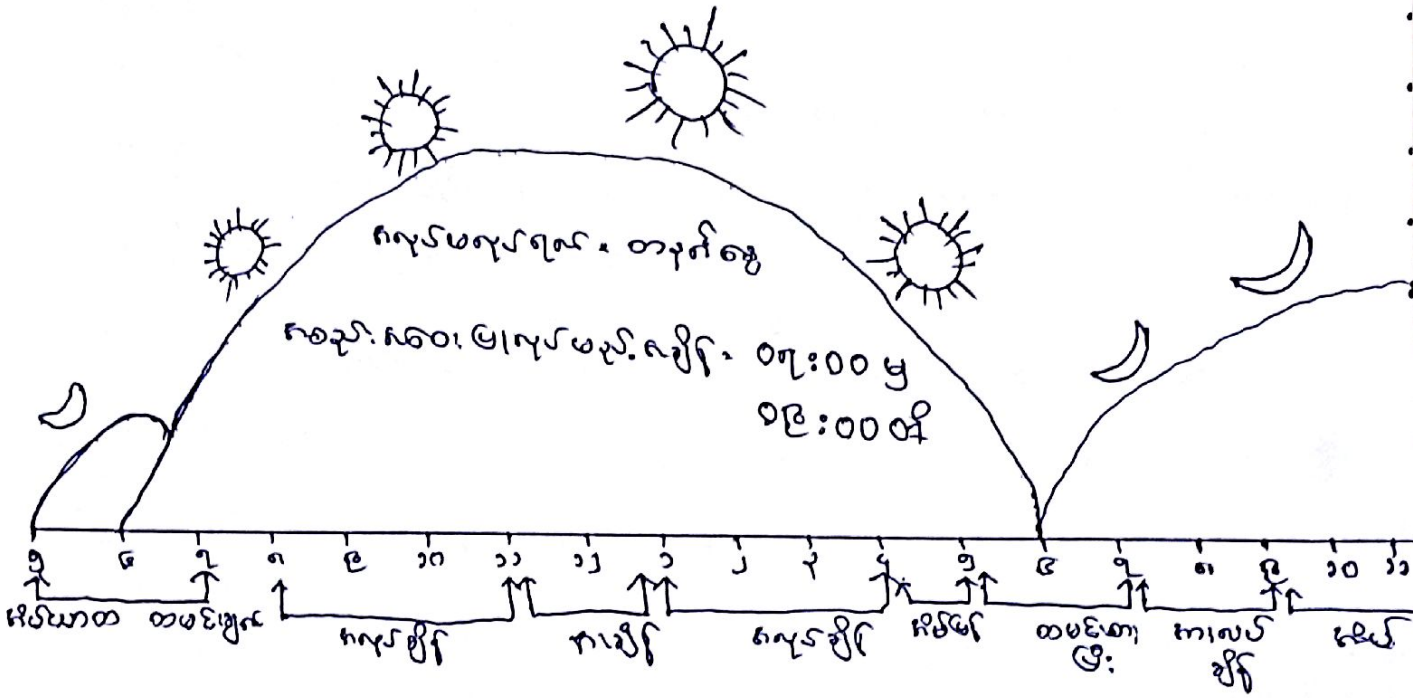 အလုပ်မလုပ်ရက် =
အစည်းအဝေး ပြုလုပ်မည့်အချိန် = ၀၇:၀၀ မှ
၀၉:၀၀ ထိ
၅ ၆ ၇ ၈ ၉ ၁၀ ၁၁ ၁၂ ၁ ၂ ၃ ၄ ၅ ၆ ၇ ၈ ၉ ၁၀ ၁၁
အိပ်ယာထ ထမင်းချက် အလုပ်ချိန် နားချိန် အလုပ်ချိန် အိမ်ပြန် ထမင်းစား အားလပ်
ပြီး ချိန်